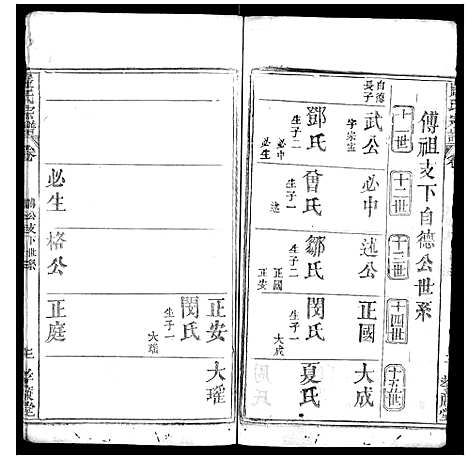 傅祖支下自德公世系
十一世
十二世
十三世
十四世
十五世
自德長子
武公
字宗宣
鄧氏
生子二
必中
必生
必中
曾氏
生子一
述
述公
鄒氏
生子二
正國
正安
正國
閔氏
生子一
大成
大成
夏氏
正安
閔氏
生子一
大瑤
大瑤
必生
格公
正庭
公支下世系
氏宗譜
卷
孝廉堂